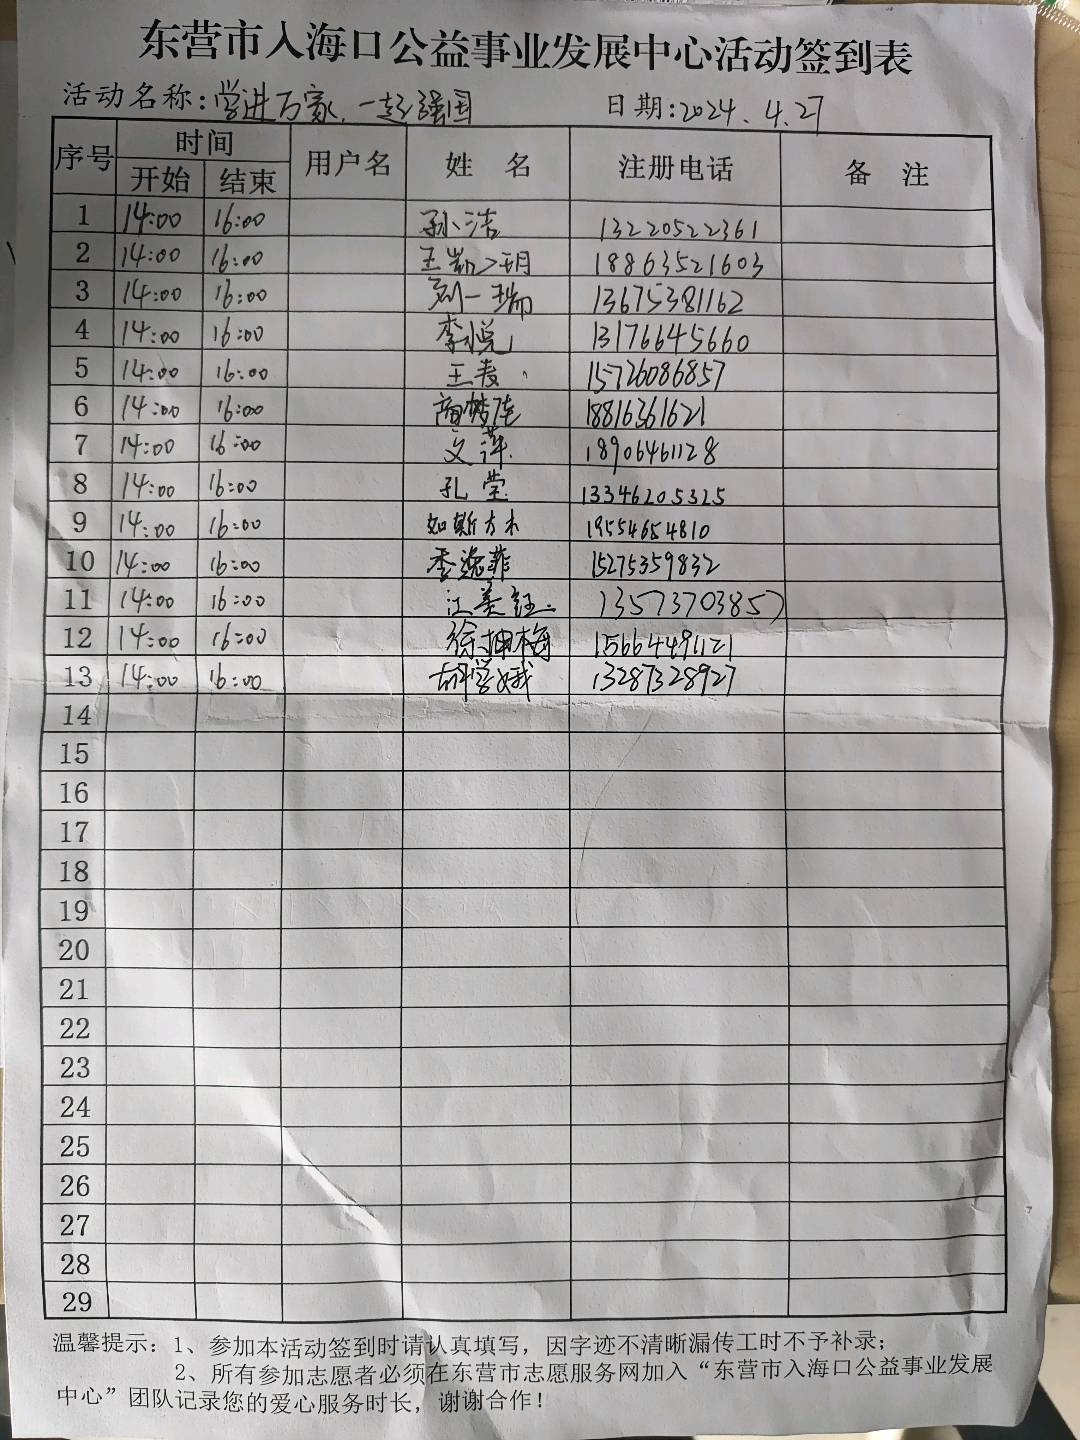 东营市入海口公益事业发展中心活动签到表
活动名称:学进万家，一起强国 日期:2024.4.27
序号 时间 用户名 姓 名 注册电话 备 注
开始 结束
1 14:00 16:00 孙洁 13220522361
2 14:00 16:00 王凯玥 18863521603
3 14:00 16:00 刘一瑞 13675381162
4 14:00 16:00 李悦 13176645660
5 14:00 16:00 王 15726086857
6 14:00 16:00 商梦佳 18816361621
7 14:00 16:00 文萍 18906461128
8 14:00 16:00 孔莹 13346205325
9 14:00 16:00 如斯方木 19554654810
10 14:00 16:00 季逸菲 15275359832
11 14:00 16:00 江美钰 13573703857
12 14:00 16:00 徐坤梅 15664491121
13 14:00 16:00 胡学娥 13287328927
14
15
16
17
18
19
20
21
22
23
24
25
26
27
28
29
温馨提示: 1、参加本活动签到时请认真填写，因字迹不清晰漏传工时不予补录；
2、所有参加志愿者必须在东营市志愿服务网加入“东营市入海口公益事业发展
中心”团队记录您的爱心服务时长，谢谢合作！